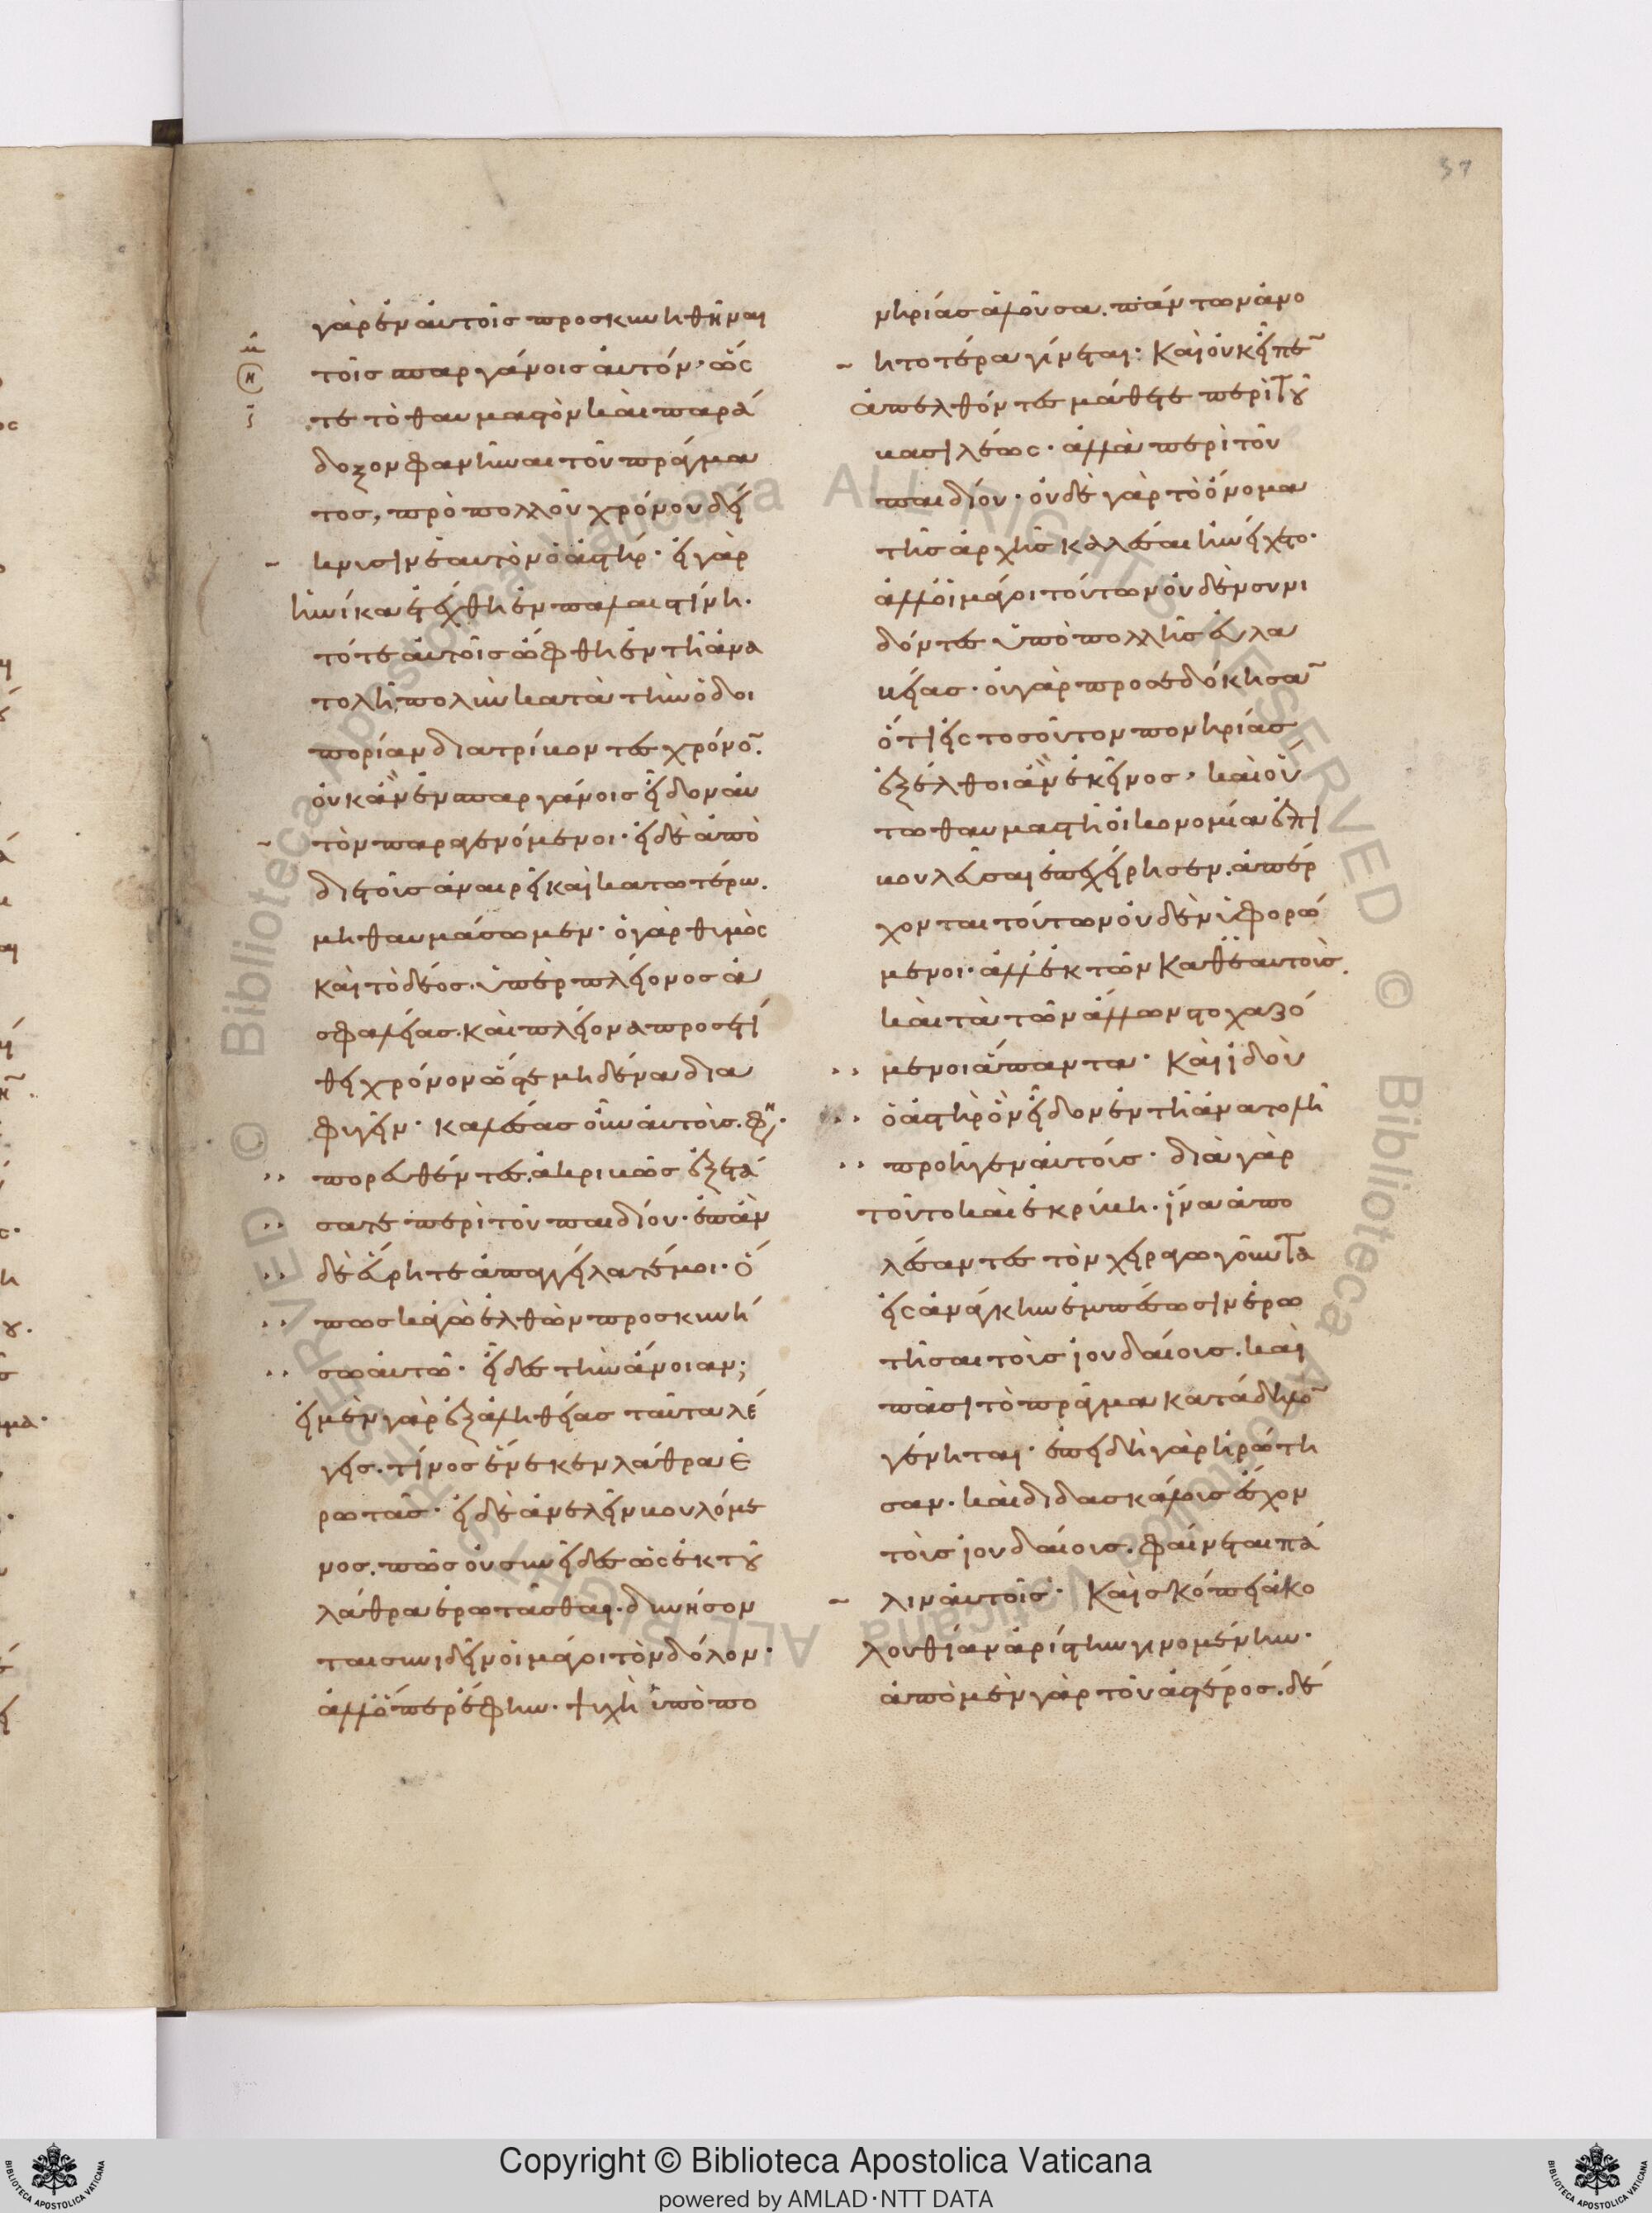 37
γὰρ ἐν αυτοῖς προσκυνηθῆναι
τοῖς σπαργάνοις αὐτόν· ὥς
τε τὸ θαυμαστὸν και παρά
δοξον φανῆναι τοῦ πράγμα
τος, πρὸ πολλοῦ χρόνου δεί
κνυσιν ἑαυτὸν ὁ ἀστήρ· εἰ γὰρ
ἡνίκα ἐτέχθη ἐν παλαιστίνη.
τότε αὐτοῖς ὤφθη ἐν τῆ ἀνα
τολῆ, πολὺν κατὰ τὴν ὁδοι
πορίαν διατρίβοντες χρόνον.
οὐκ ἂν ἐν σπαργάνοις εἶδον αὐ
τὸν παραγενόμενοι· εἰ δὲ ἀπὸ
διετοῦς ἀναιρεῖ καὶ κατωτέρω.
μὴ θαυμάσωμεν· ὁ γὰρ θυμὸς
καὶ τὸ δέος. ὑπὲρ πλείονος ἀ
σφαλείας. καὶ πλείονα προστί
θει χρόνον ὥστε μηδένα δια
φυγεῖν· καλέσας οὖν αὐτοὺς. φη·
πορευθέντες. ἀκριβῶς ἐξετά
σατε περὶ τοῦ παιδίου· ἐπὰν
δὲ εὕρητε ἀπαγγείλατέ μοι· ὅ
πως κἀγὼ ἐλθὼν προσκυνή
σω αυτῶ· εἶδες τὴν ἄνοιαν;
εἰ μὲν γὰρ ἐξ ἀληθείας ταῦτα λέ
γεις. τίνος ἕνεκεν λάθρα ἐ
ρωτᾶς· εἰ δὲ ἀνελεῖν βουλόμε
νος. πῶς οὐ συνεῖδες ὡς ἐκ τοῦ
λάθρα ἐρωτᾶσθαι. δυνήσον
ται συνιδεῖν οἱ μάγοι τὸν δόλον·
ἀλλ' ὅπερ ἔφην. ψυχὴ ὑπὸ πο
νηρίας ἁλοῦσα. πάντων ἀνο
ητοτέρα γίνεται· Καὶ οὐκ εἶπεν
ἀπελθόντες μάθετε περὶ τοῦ
βασιλέως· ἀλλὰ περὶ τοῦ
παιδίου· οὐδὲ γὰρ τὸ ὄνομα
τῆς ἀρχῆς καλέσαι ἠνείχετο·
ἀλλ' οἱ μάγοι τούτων οὐδὲν συνι
δόντες ὑπὸ πολλῆς εὐλα
βείας· οὐ γὰρ προσεδόκησαν
ὅτι εἰς τοσοῦτον πονηρίας
ἐξέλθοι ἂν ἐκεῖνος, καὶ οὐ
τω θαυμαστῆ οἰκονομία ἐπι
βουλεῦσαι ἐπεχείρησεν. ἀπέρ
χονται τούτων οὐδὲν ὑφορώ
μενοι· ἀλλ' ἐκ τῶν καθ' ἑαυτοὺς.
καὶ τὰ τῶν ἄλλων στοχαζό
μενοι ἅπαντα· Καὶ ἰδοὺ
ὁ ἀστὴρ ὃν εἶδον ἐν τῆ ἀνατολῆ
προῆγεν αὐτούς· διὰ γὰρ
τοῦτο καὶ ἐκρύβη. ἵνα ἀπο
λέσαντες τὸν χειραγωγοῦντα
εἰς ἀνάγκην ἐμπέσωσιν ἐρω
τῆσαι τοὺς ἰουδαίους. καὶ
πᾶσι τὸ πρᾶγμα κατάδηλον
γένηται· ἐπειδὴ γὰρ ἠρώτη
σαν. καὶ διδασκάλους ἔσχον
τοὺς ἰουδαίους. φαίνεται πά
λιν αὐτοῖς· Καὶ σκόπει ἀκο
λουθίαν ἀρίστην γινομένην·
ἀπὸ μὲν γὰρ τοῦ ἀστέρος. δέ
Copyright © Biblioteca Apostolica Vaticana
powered by AMLAD·NTT DATA